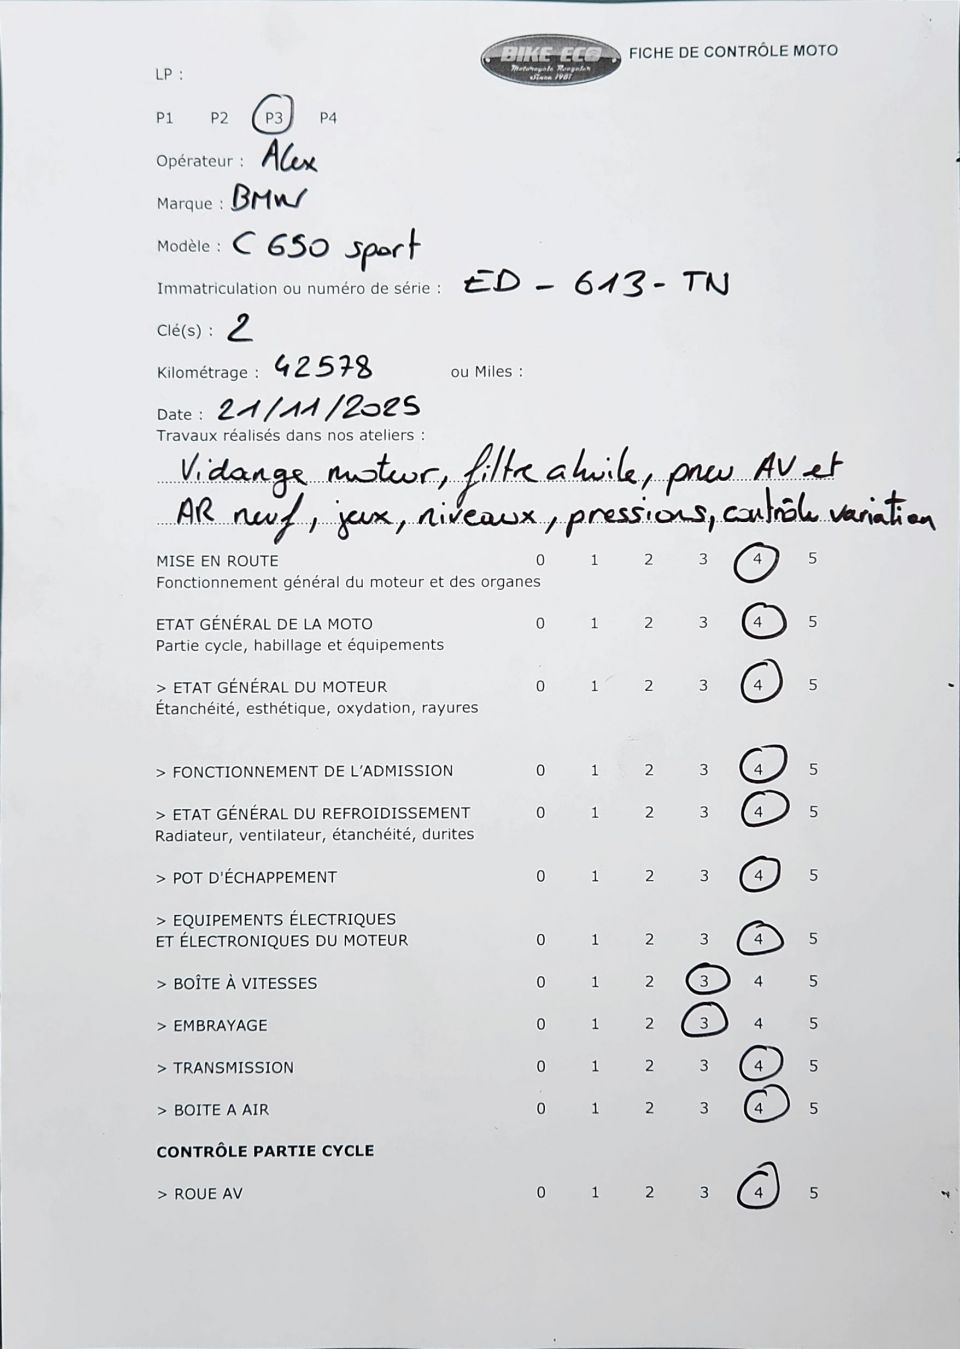 BIKE ECO
Motorcycle Recycler
Since 1981
FICHE DE CONTRÔLE MOTO
LP :
P1 P2 P3 P4
Opérateur : Alex
Marque : BMW
Modèle : C 650 sport
Immatriculation ou numéro de série : ED - 613 - TN
Clé(s) : 2
Kilométrage : 42578 ou Miles :
Date : 21/11/2025
Travaux réalisés dans nos ateliers :
Vidange moteur, filtre a huile, pneu AV et
AR neuf, jeux, niveaux, pressions, contrôle variation
MISE EN ROUTE 0 1 2 3 4 5
Fonctionnement général du moteur et des organes
ETAT GÉNÉRAL DE LA MOTO 0 1 2 3 4 5
Partie cycle, habillage et équipements
> ETAT GÉNÉRAL DU MOTEUR 0 1 2 3 4 5
Étanchéité, esthétique, oxydation, rayures
> FONCTIONNEMENT DE L'ADMISSION 0 1 2 3 4 5
> ETAT GÉNÉRAL DU REFROIDISSEMENT 0 1 2 3 4 5
Radiateur, ventilateur, étanchéité, durites
> POT D'ÉCHAPPEMENT 0 1 2 3 4 5
> EQUIPEMENTS ÉLECTRIQUES
ET ÉLECTRONIQUES DU MOTEUR 0 1 2 3 4 5
> BOÎTE À VITESSES 0 1 2 3 4 5
> EMBRAYAGE 0 1 2 3 4 5
> TRANSMISSION 0 1 2 3 4 5
> BOITE A AIR 0 1 2 3 4 5
CONTRÔLE PARTIE CYCLE
> ROUE AV 0 1 2 3 4 5